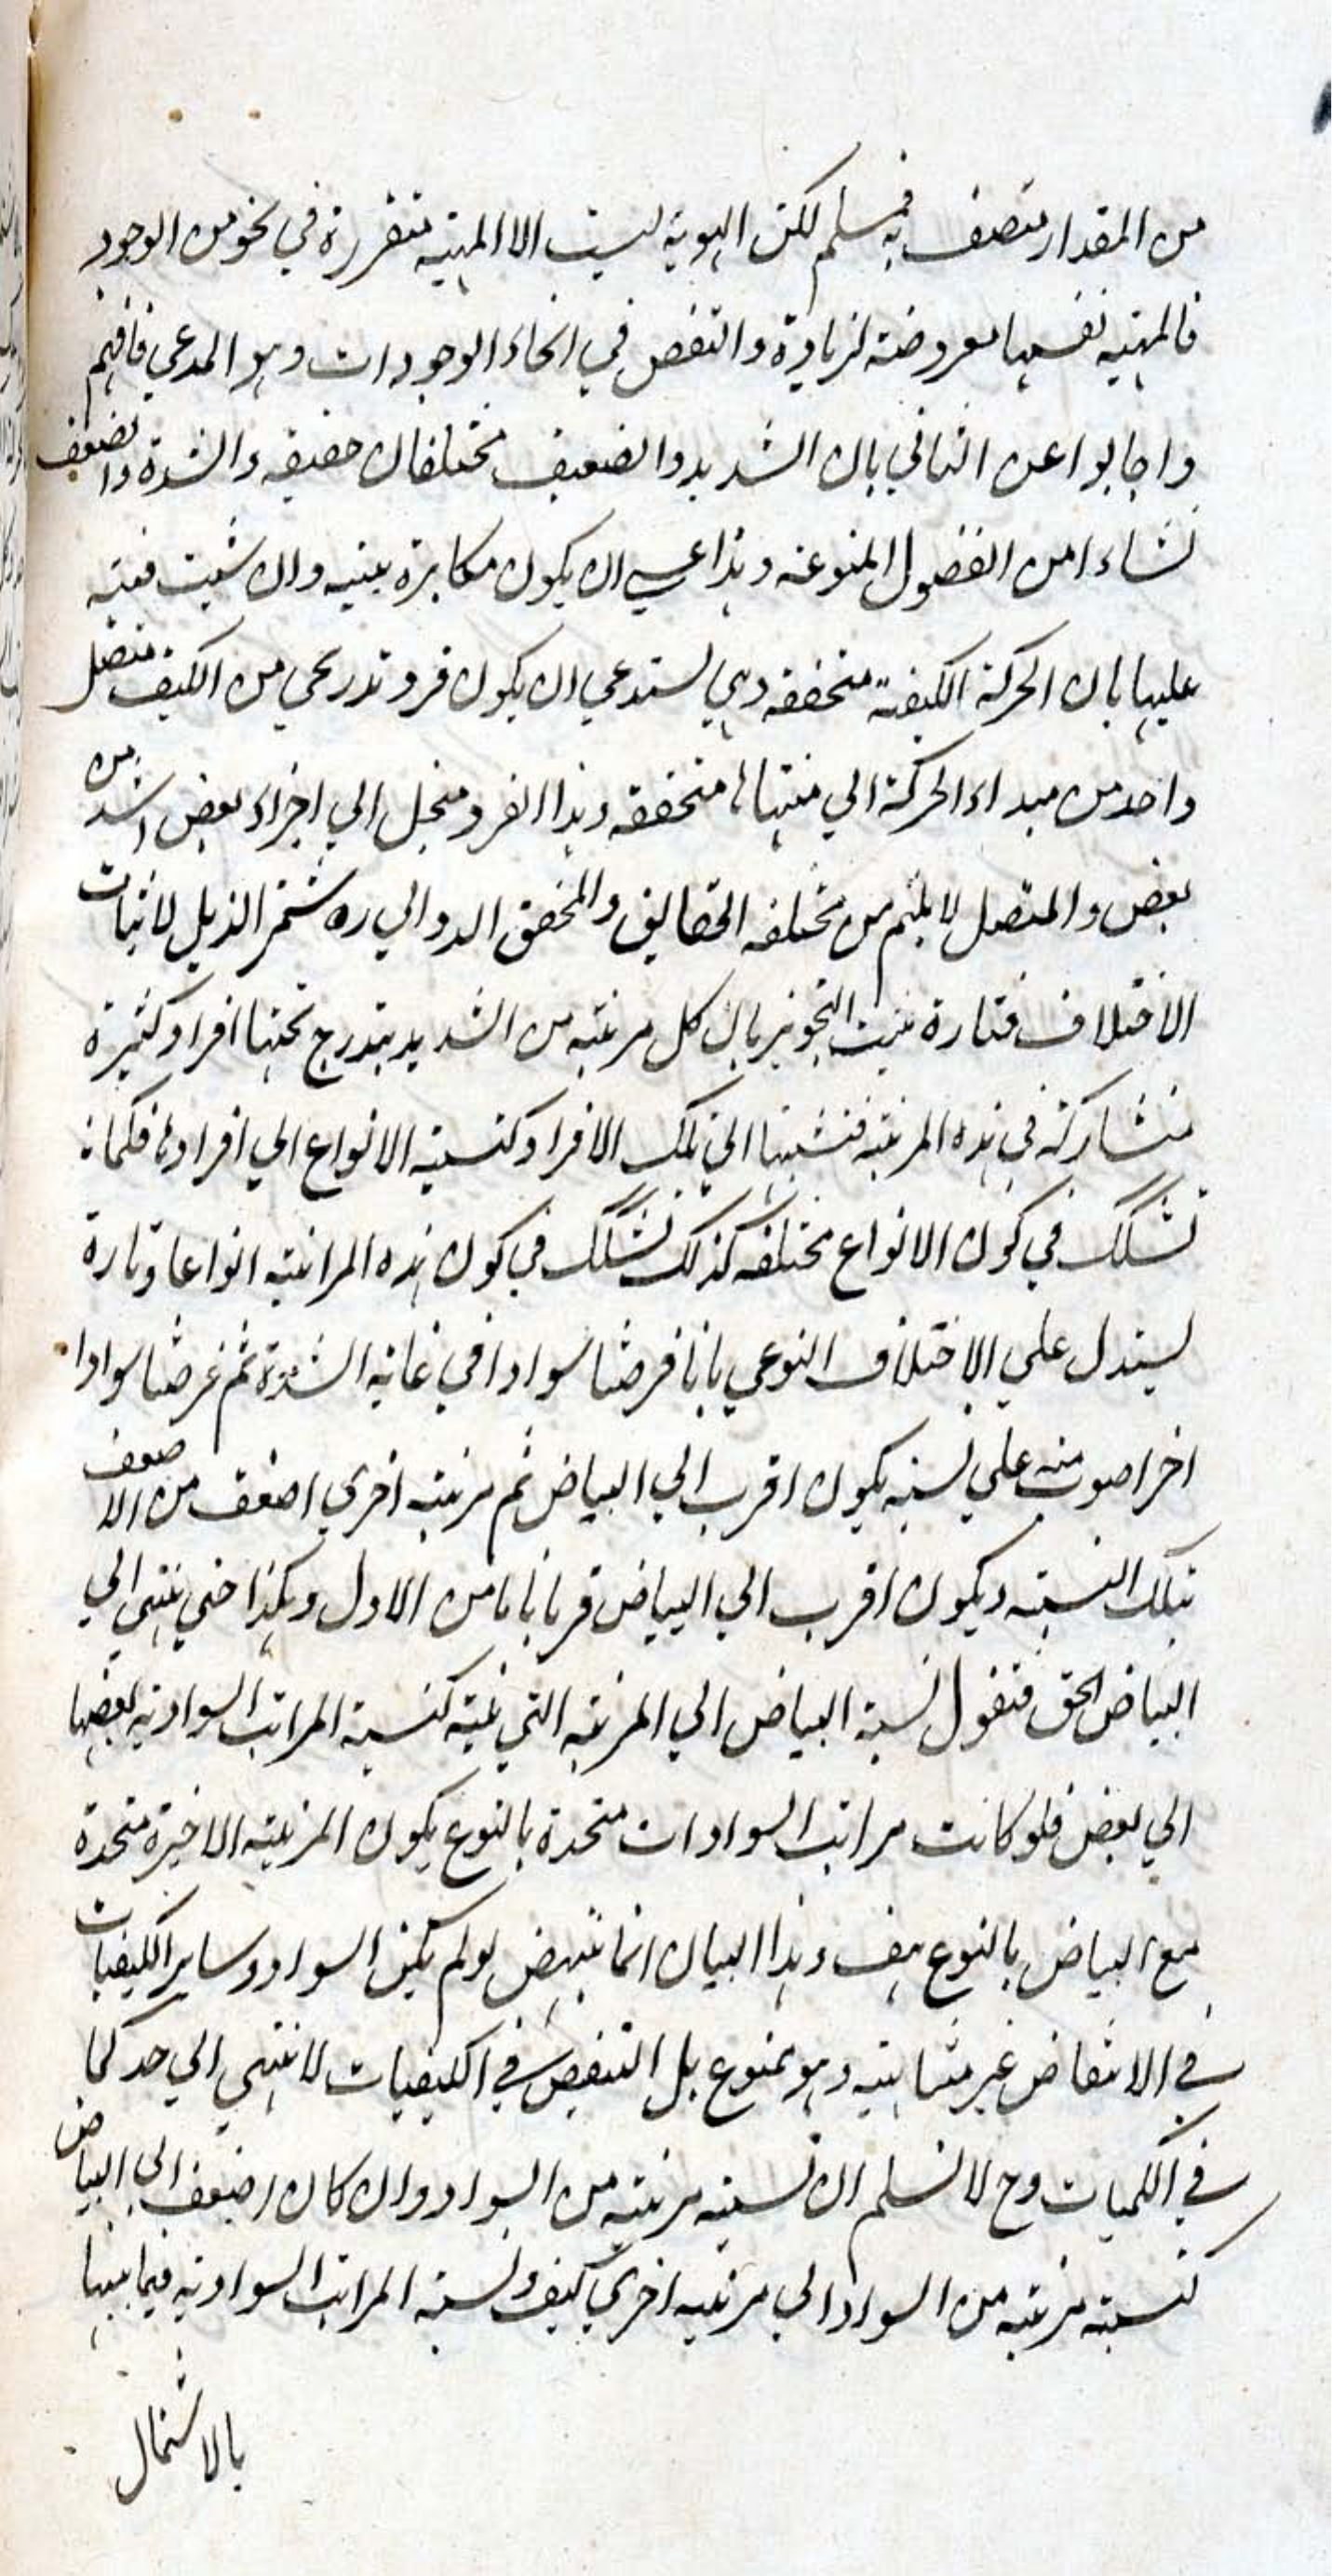 من المقدار متصف به فمسلم لكن الهوية ليست الا المهيه متقررة في نحو من الوجود
فالمهيه نفسها معروضة لزيادة والنقص في انحاء الوجودات وهو المدعي فافهم
واجابوا عن الثاني بان الشديد والضعيف مختلفان حقيقه والشدة والضعف
نشاءا من الفصول المنوعه وهذا عسي ان يكون مكابرة بينيه وان شيت فنبه
عليها بان الحركة الكيفيه متحققه وهي لستدعي ان يكون فرد تدريجي من الكيف متصل
واحد من مبداء الحركة الي منتهاها متحققه وهذا الفرد منحل الي اجزاء بعض اشد من
بعض والمتصل لا يلتيم من مختلفه الحقايق والمحقق الدواني ره شمر الذيل لاثبات
الاختلاف فتارة يثبت التجويز بان كل مرتبه من الشديد يندرج تحتها افراد كثيرة
متشاركة في هذه المرتبه فنسبتها الي تلك الافراد كنسبة الانواع الي افرادها فكما لا
نشكك في كون الانواع مختلفه كذلك لا نشكك في كون هذه المراتبه انواعا وتارة
ليستدل علي الاختلاف النوعي بانا فرضنا سوادا في غاية الشدة ثم فرضنا سوادا
اخرا صون منه علي نسبة يكون اقرب الي البياض ثم مرتبه اخري اضعف من الاضعف
بتلك النسبة ويكون اقرب الي البياض قربا ما من الاول وهكذا حتي ينتهي الي
البياض الحق فنقول نسبة البياض الي المرتبه التي يليه كنسبة المراتب السوادية بعضها
الي بعض فلو كانت مراتب السوادات متحدة بالنوع يكون المرتبه الاخيرة متحدة
مع البياض بالنوع هف وهذا البيان انما ينهض لو لم يكن السواد وساير الكيفيات
في الانتقاض غير متناهيه وهو ممنوع بل التنقيص في الكيفيات لا ينتهي الي حد كما
في الكميات وح لا نسلم ان نسبته مرتبه من السواد وان كان اضعف الي البياض
كنسبة مرتبه من السواد الي مرتبه اخري كيف ونسبة المراتب السوادية فيما بينها
بالاشتمال